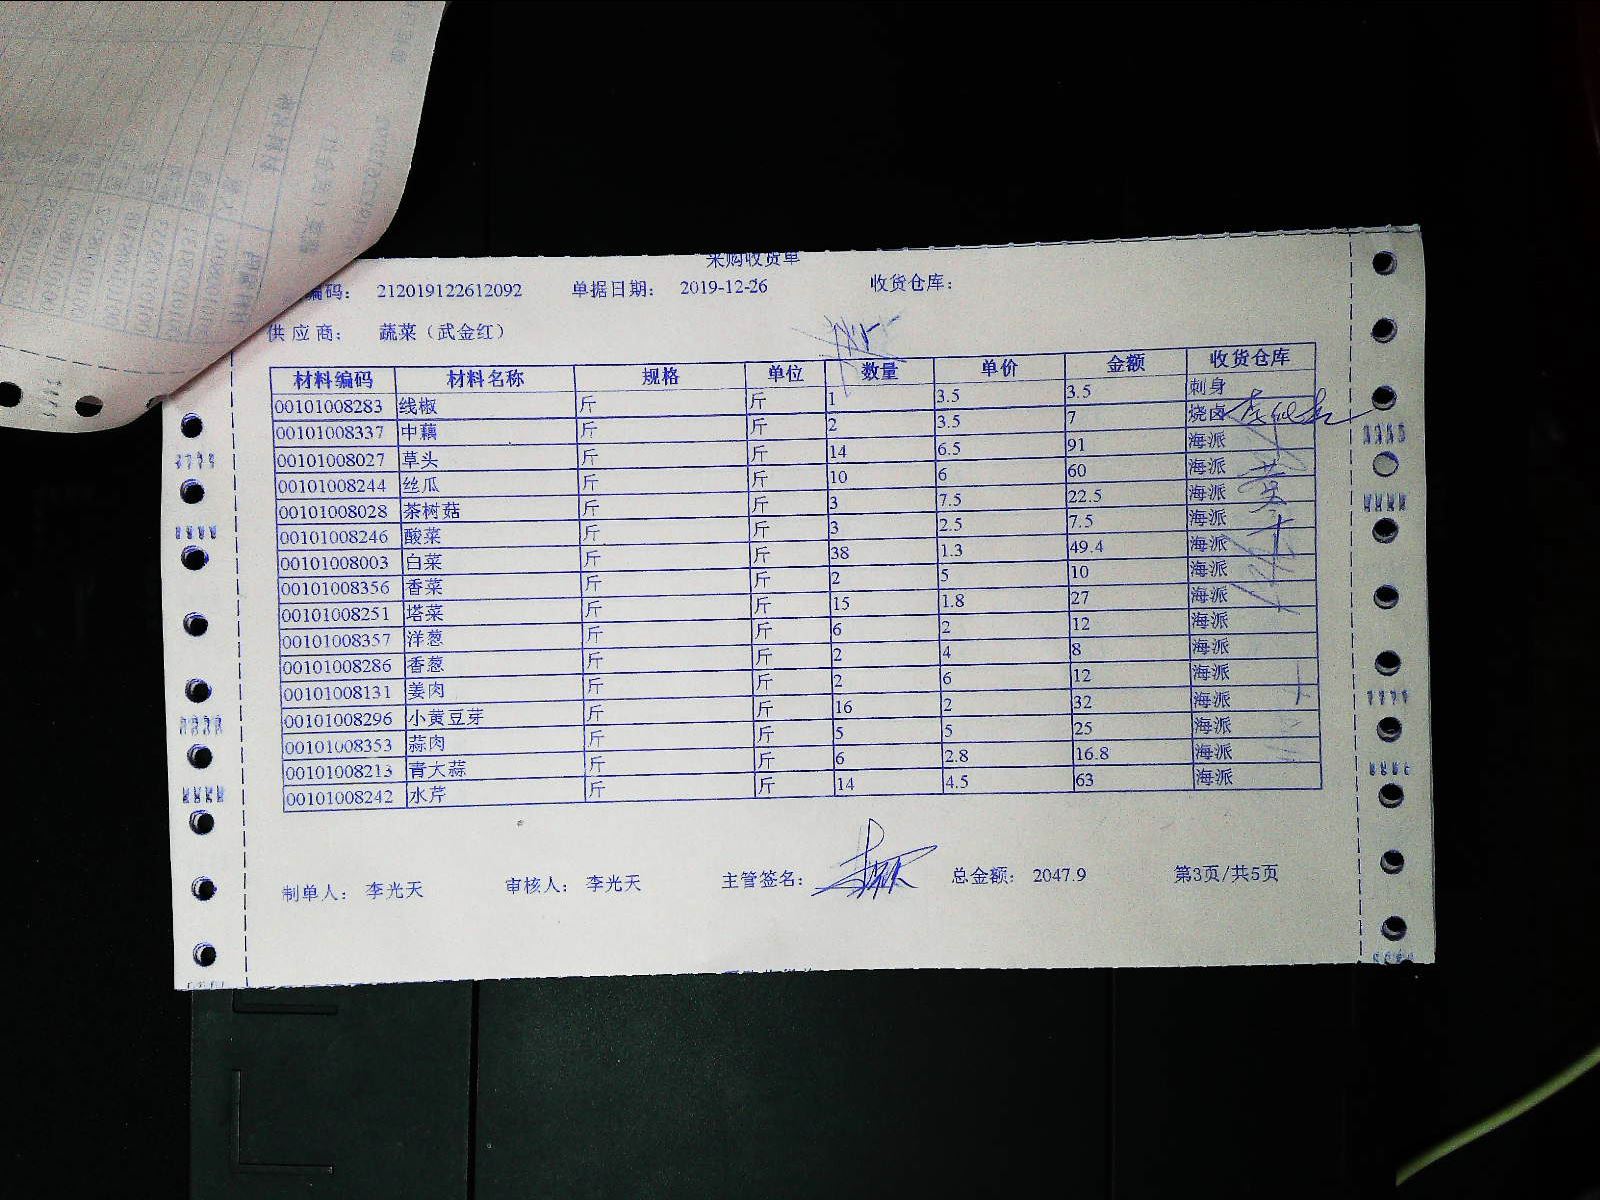 采购收货单
编码： 212019122612092 单据日期： 2019-12-26 收货仓库：
供应商： 蔬菜（武金红）
材料编码 材料名称 规格 单位 数量 单价 金额 收货仓库
00101008283 线椒 斤 斤 1 3.5 3.5 刺身
00101008337 中藕 斤 斤 2 3.5 7 烧卤
00101008027 草头 斤 斤 14 6.5 91 海派
00101008244 丝瓜 斤 斤 10 6 60 海派
00101008028 茶树菇 斤 斤 3 7.5 22.5 海派
00101008246 酸菜 斤 斤 3 2.5 7.5 海派
00101008003 白菜 斤 斤 38 1.3 49.4 海派
00101008356 香菜 斤 斤 2 5 10 海派
00101008251 塔菜 斤 斤 15 1.8 27 海派
00101008357 洋葱 斤 斤 6 2 12 海派
00101008286 香葱 斤 斤 2 4 8 海派
00101008131 姜肉 斤 斤 2 6 12 海派
00101008296 小黄豆芽 斤 斤 16 2 32 海派
00101008353 蒜肉 斤 斤 5 5 25 海派
00101008213 青大蒜 斤 斤 6 2.8 16.8 海派
00101008242 水芹 斤 斤 14 4.5 63 海派
制单人： 李光天 审核人： 李光天 主管签名： 总金额： 2047.9 第3页/共5页